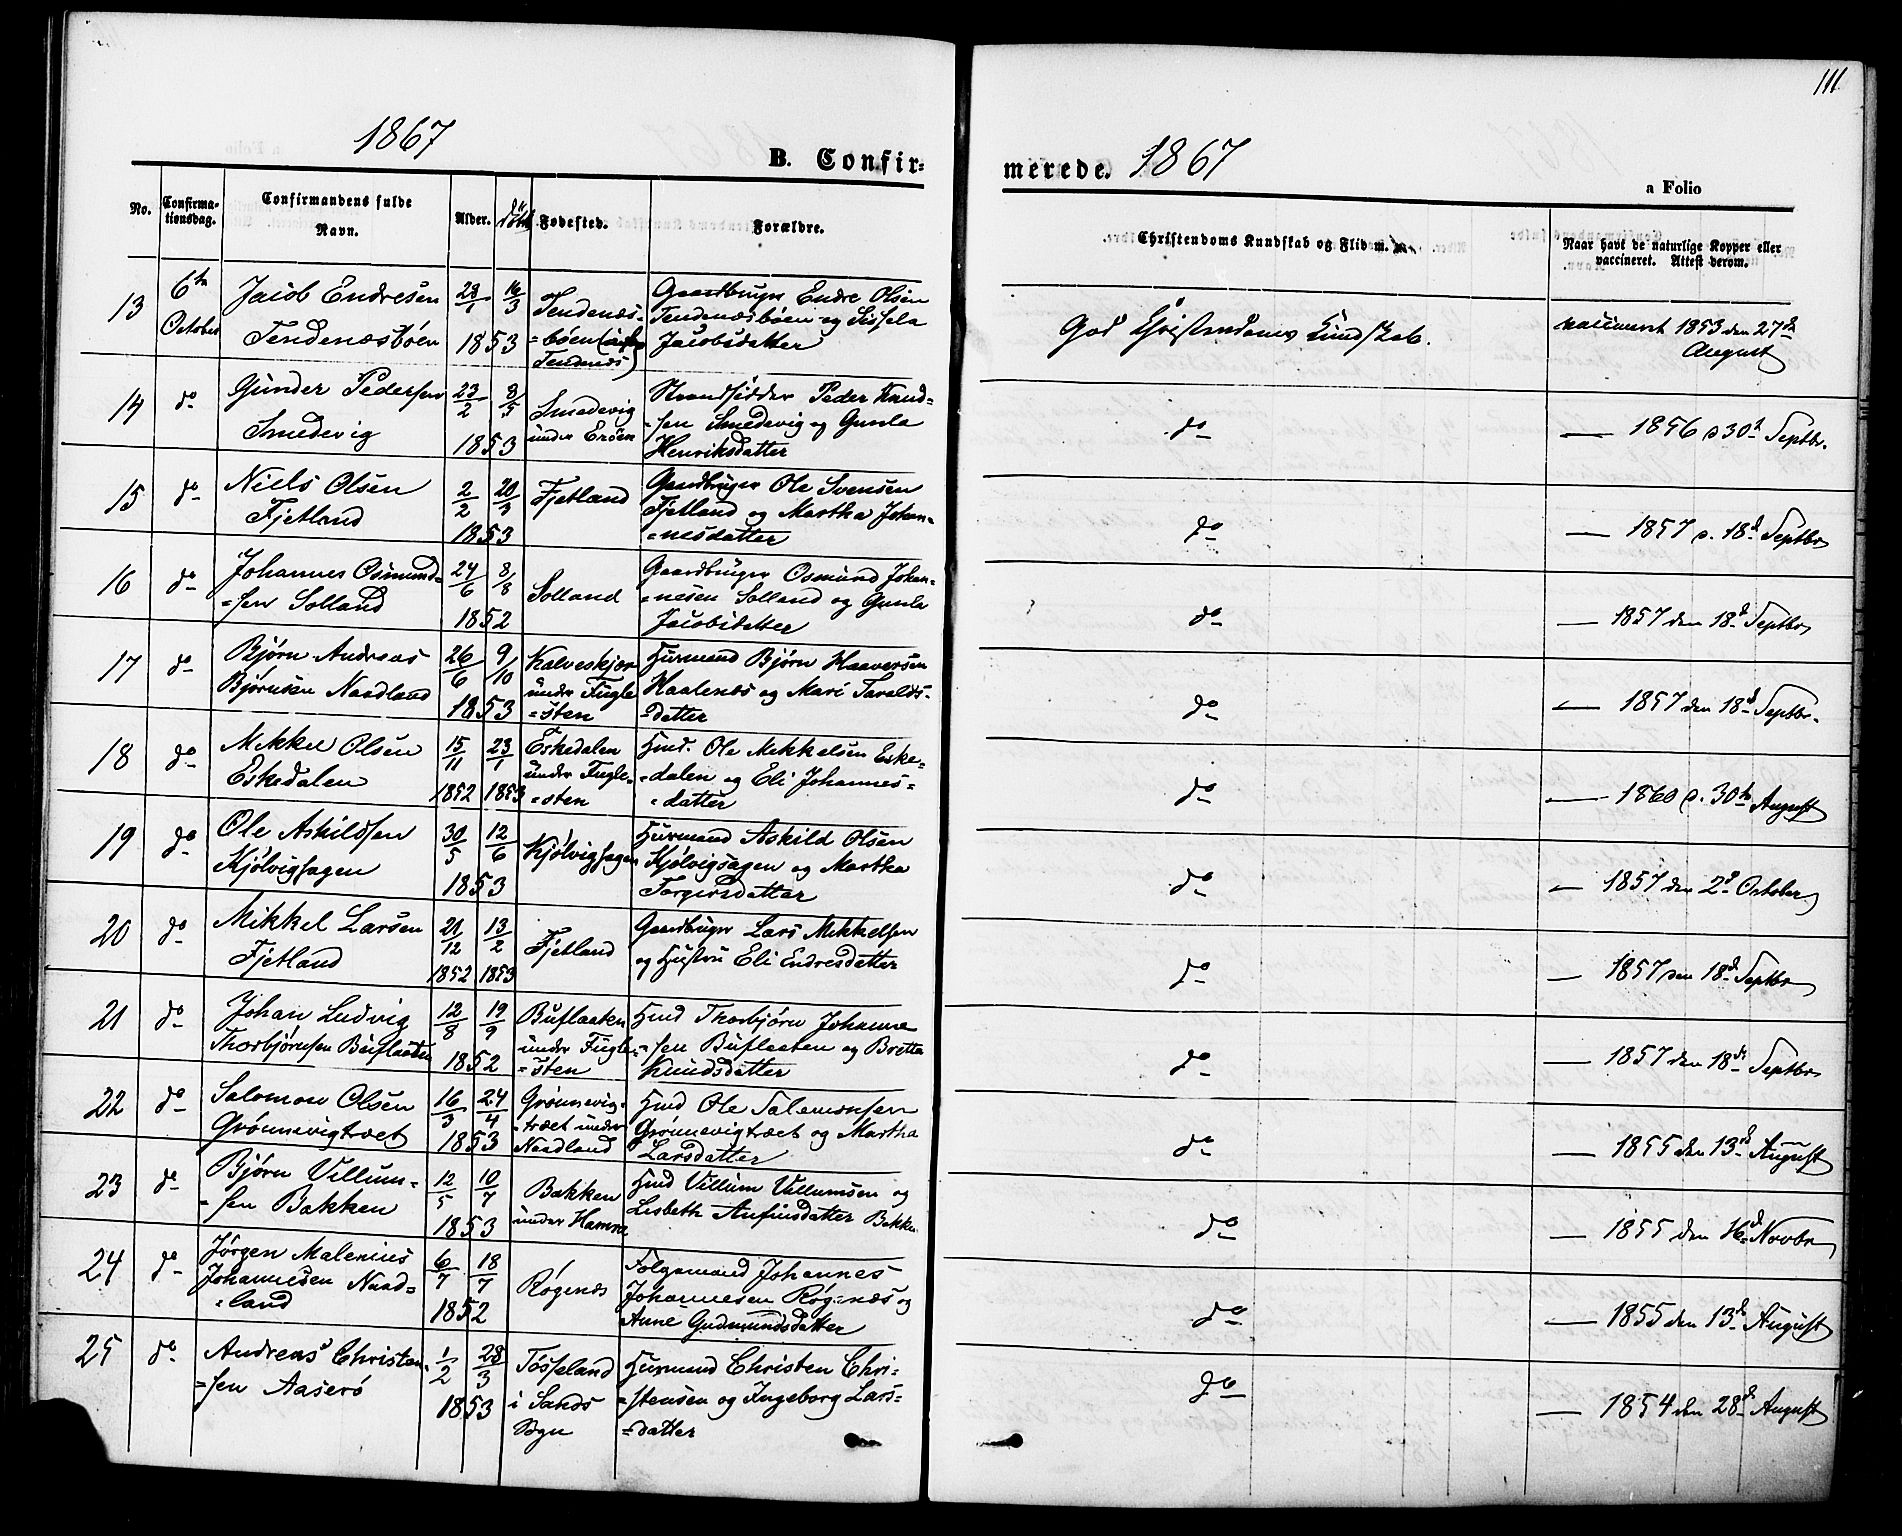 111.
1867
B. Confir=
merede. 1867
a Folio
No.
Confirma-
tionsdag.
Confirmandens fulde
Navn.
Alder.
døbt
Fødested.
Forældre.
Christendoms Kundskab og Flid m. m.
Naar havt de naturlige Kopper eller
vaccineret. Attest derom.
13 6te October
Jacob Endresen
Tendenæsbøen
16/3 1853
Tendenæs-
=bøen
Tendenæs)
Gaardbruger Endre Olsen
Tendenæsbøen og Sissela
Jacobsdatter
God Christendoms Kundskab.
vaccineret 1853 den 27de
August
14 do
Gunder Pedersen
Smedevig
23/2 8/5 1853
Smedevig
under Ersøen
Strandsidder Peder Knud-
=sen Smedevig og Gunla
Henriksdatter
do
— 1856 d 30te Septbr.
15 do
Niels Olsen
Fjetland
2/2 20/3 1853
Fjetland
Gaardbruger Ole Svensen
Fjetland og Martha Johan-
=nesdatter
do
— 1857 d. 18de Septbr
16 do
Johannes Osmund-
=sen Solland
24/6 8/8 1852
Solland
Gaardbruger Osmund Johan-
=nesen Solland og Gunla
Jacobsdatter
do
— 1857 den 18de Septbr
17 do
Bjørn Andreas
Bjørnsen Naadland
26/6 9/10 1853
Kalveskjær
under Fugle-
=sten
Huusmand Bjørn Haaversen
Haalenæs og Mari Taralds-
=datter
do
— 1857 den 18de Septbr.
18 do
Mikkel Olsen
Eskedalen
15/11 1852 23/1 1853
Eskedalen
under Fugle-
=sten
Hmd. Ole Mikkelsen Eske-
=dalen og Eli Johannes-
=datter
do
— 1860 d. 30te August
19 do
Ole Askildsen
Kjølvigsagen
30/5 12/6 1853
Kjølvigsagen
Huusmand Askild Olsen
Kjølvigsagen og Martha
Torgersdatter
do
— 1857 den 2d October
20 do
Mikkel Larsen
Fjetland
21/12 1852 13/2 1853
Fjetland
Gaardbruger Lars Mikkelsen
og Hustru Eli Endresdatter
do
— 1857 den 18de Septbr
21 do
Johan Ludvig
Thorbjørnsen Buflaaten
12/8 19/9 1852
Buflaaten
under Fugle-
=sten
Hmd Thorbjørn Johanne
=sen Buflaaten og Bretta
Knudsdatter
do
— 1857 den 18de Septbr
22 do
Salomon Olsen
Grønnevigtræet
16/3 24/4 1853
Grønnevig-
=træet under
Naadland
Hmd Ole Salemonsen
Grønnevigtræet og Martha
Larsdatter
do
— 1855 den 13de August
23 do
Bjørn Villum-
=sen Bakken
12/5 10/7 1853
Bakken
under Hamre
Hmd Villum Villumsen og
Lisbeth Anfinsdatter Bakke
do
— 1855 den 16de Novbr
24 do
Jørgen Malenius
Johannesen Naad-
=land
6/7 18/7 1852
Røgenæs
Følgemand Johannes
Johannesen Røgenæs og
Anne Gudmundsdatter
do
— 1855 den 13de August
25 do
Andreas Christen-
=sen Aaserø
1/2 28/3 1853
Tøsseland
i Sands
Sogn
Huusmand Christen Chri-
=stensen og Ingeborg Lars-
=datter
do
— 1854 den 28de August